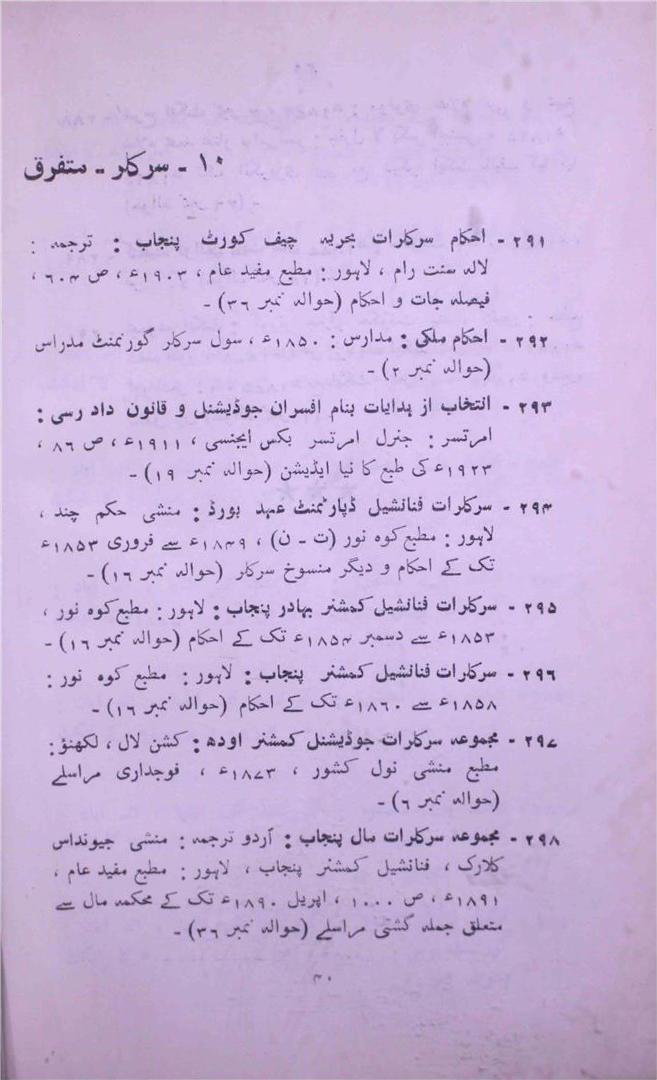 ۱۰ - سرکلر - متفرق
۲۹۱ - احکام سرکلرات بحریہ چیف کورٹ پنجاب : ترجمہ :
لالہ سنت رام ، لاہور : مطبع مفید عام ، ۱۹۰۳ء ، ص ۶۰۴ ،
فیصلہ جات و احکام (حوالہ نمبر ۳۶) -
۲۹۲ - احکام ملکی : مدارس : ۱۸۵۰ء ، سول سرکلر گورنمنٹ مدراس
(حوالہ نمبر ۲) -
۲۹۳ - انتخاب از ہدایات بنام افسران جوڈیشنل و قانون داد رسی :
امرتسر : جنرل امرتسر بکس ایجنسی ، ۱۹۱۱ء ، ص ۸۶ ،
۱۹۲۳ء کی طبع کا نیا ایڈیشن (حوالہ نمبر ۱۹) -
۲۹۴ - سرکلرات فنانشیل ڈپارٹمنٹ عہد بورڈ : منشی حکم چند ،
لاہور : مطبع کوہ نور (ت - ن) ، ۱۸۴۹ء سے فروری ۱۸۵۳ء
تک کے احکام و دیگر منسوخ سرکلر (حوالہ نمبر ۱۶) -
۲۹۵ - سرکلرات فنانشیل کمشنر بہادر پنجاب : لاہور : مطبع کوہ نور ،
۱۸۵۳ء سے دسمبر ۱۸۵۴ء تک کے احکام (حوالہ نمبر ۱۶) -
۲۹۶ - سرکلرات فنانشیل کمشنر پنجاب : لاہور : مطبع کوہ نور :
۱۸۵۸ء سے ۱۸۶۰ء تک کے احکام (حوالہ نمبر ۱۶) -
۲۹۷ - مجموعہ سرکلرات جوڈیشنل کمشنر اودھ : کشن لال ، لکھنؤ :
مطبع منشی نول کشور ، ۱۸۷۳ء ، فوجداری مراسلے
(حوالہ نمبر ۶) -
۲۹۸ - مجموعہ سرکلرات مال پنجاب : اردو ترجمہ : منشی جیونداس
کلارک ، فنانشیل کمشنر پنجاب ، لاہور : مطبع مفید عام ،
۱۸۹۱ء ، ص ۱۰۰۰ ، اپریل ۱۸۹۰ء تک کے محکمہ مال سے
متعلق جملہ گشتی مراسلے (حوالہ نمبر ۳۶) -
۴۰